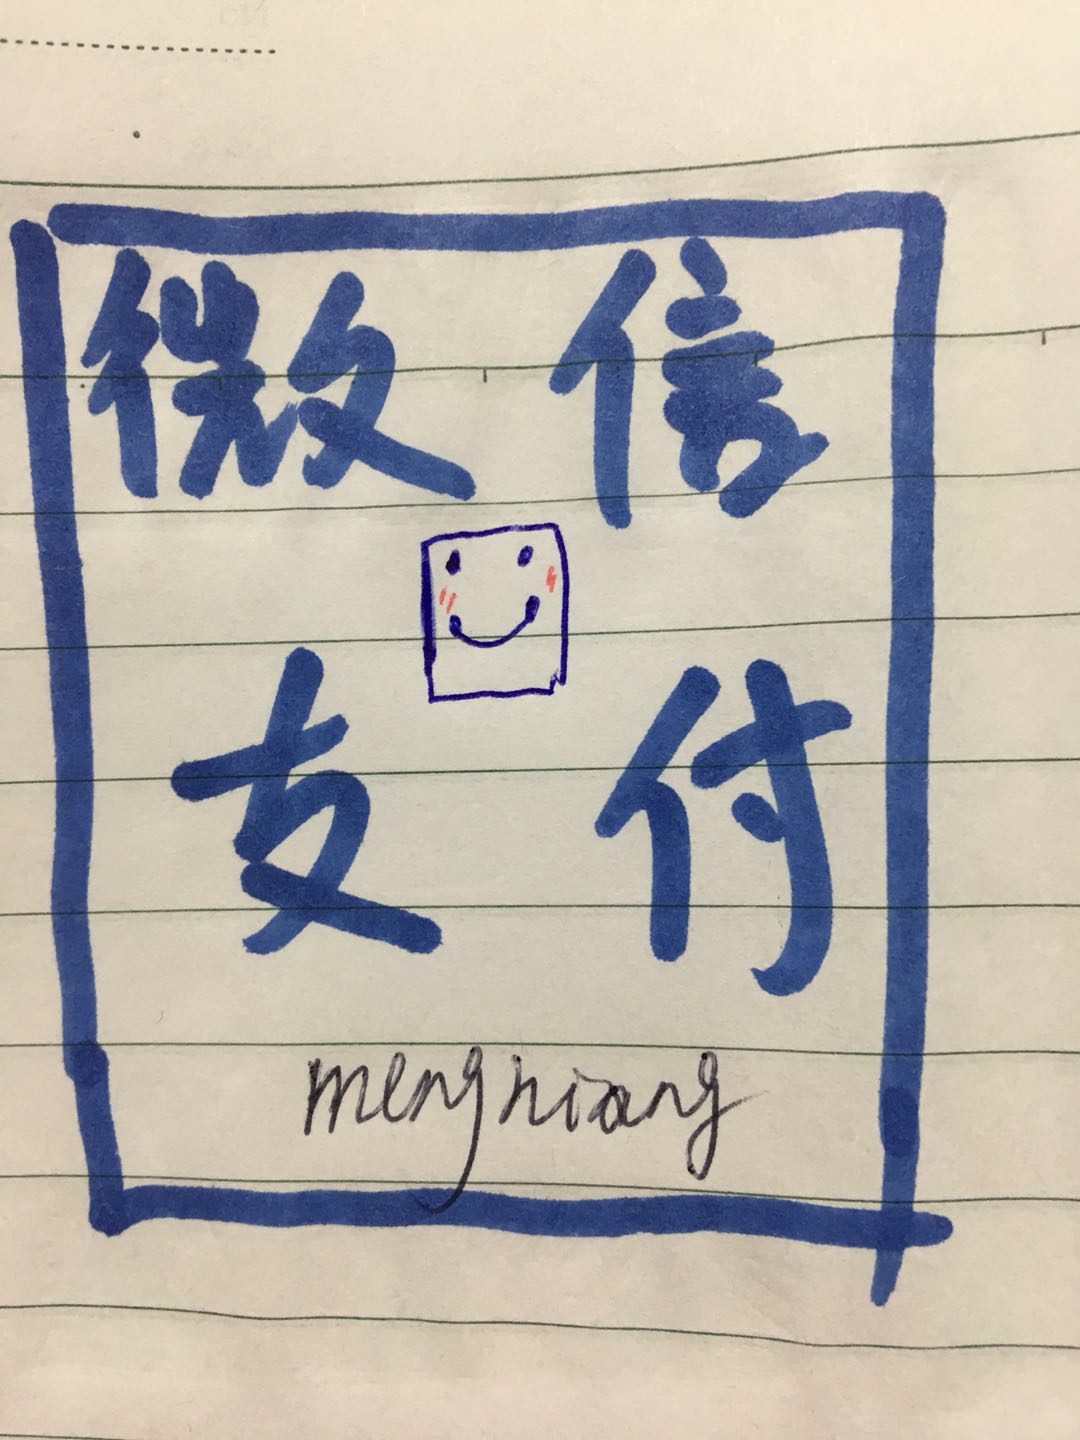 微信
支付
menghiang